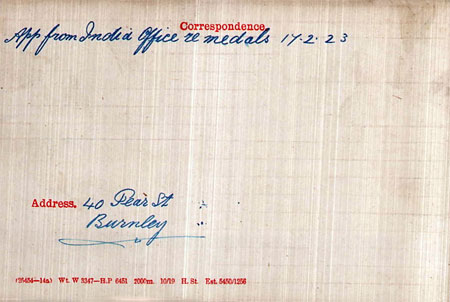 Correspondence.
App from India Office re medals 17.2.23
Address. 40 Pear St
Burnley
(25454—14a) Wt. W 3347—H.P 6451 2000m. 10/19 H. St. Est. 5450/1256